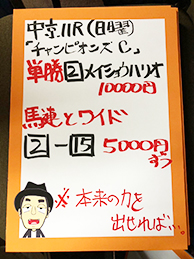 中京11R(日曜)
「チャンピオンズC」
単勝②メイショウハリオ
10000円
馬連とワイド
②-⑮ 5000円
ずつ
※本来の力を
出せれば…。